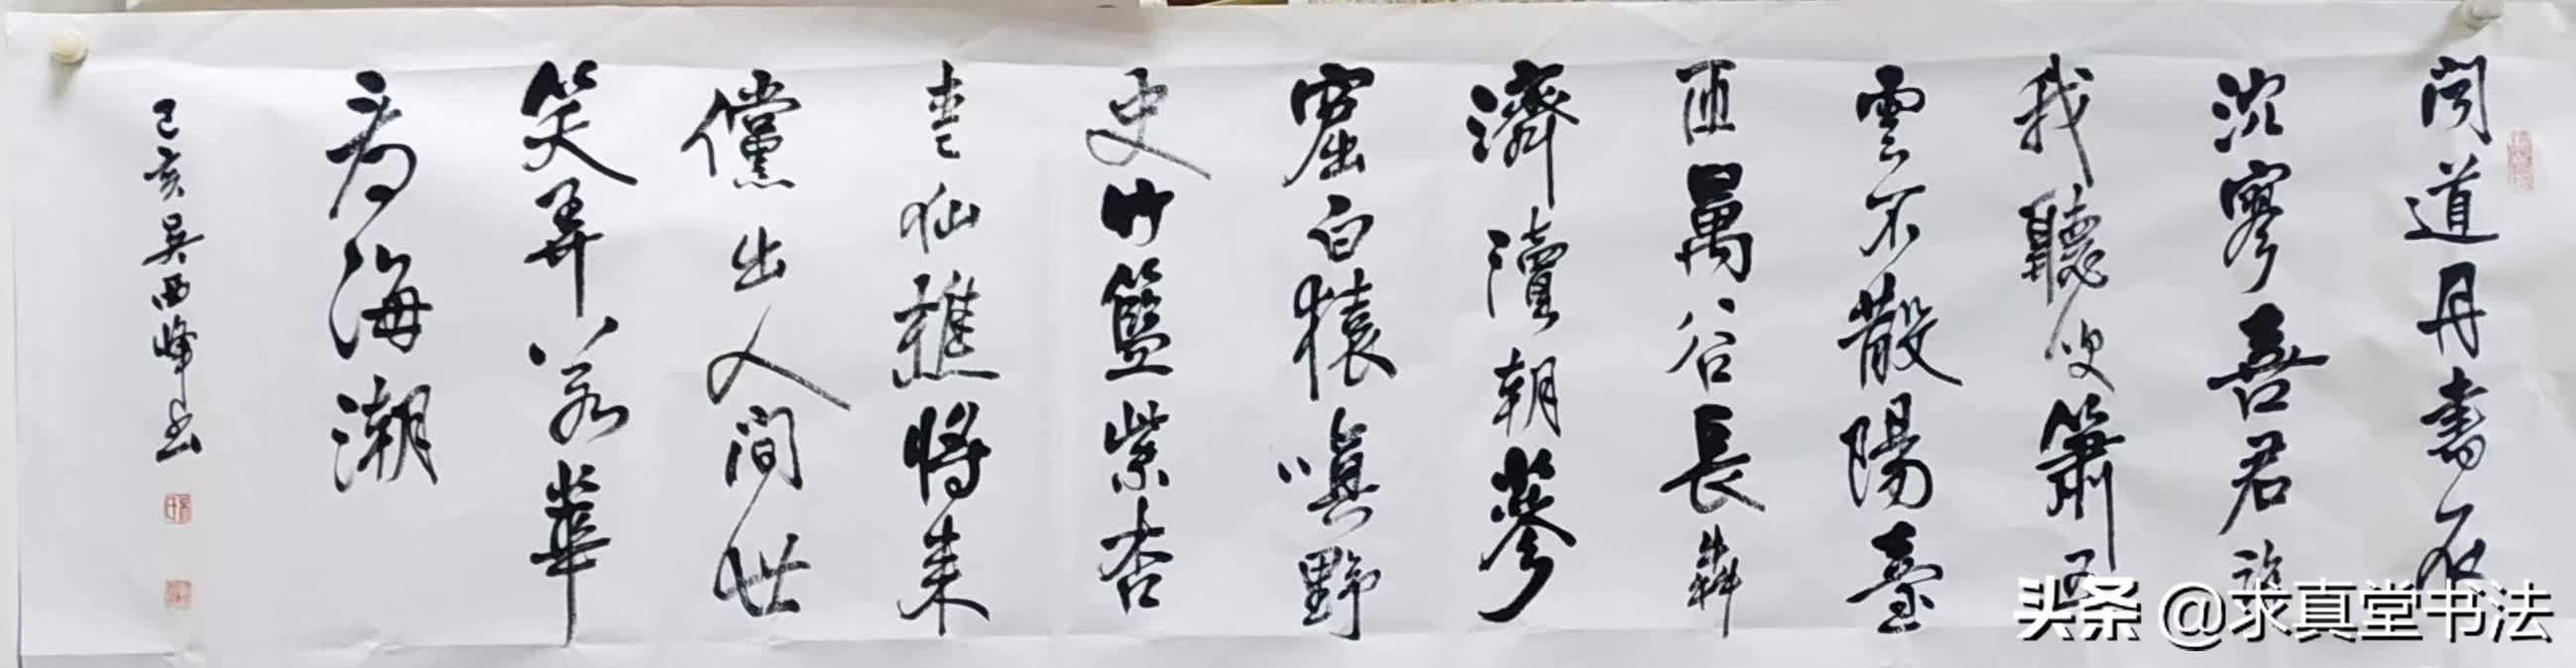 聞道丹書
寥喜君
我聽吹簫
雲不散陽臺
匝萬谷長
濟瀆朝蔘
窟白猿嗔野
史竹籃紫杏
仙樵將來
儻出人間世
笑弄若華
為海潮
己亥吳西峰書
头条 @求真堂书法